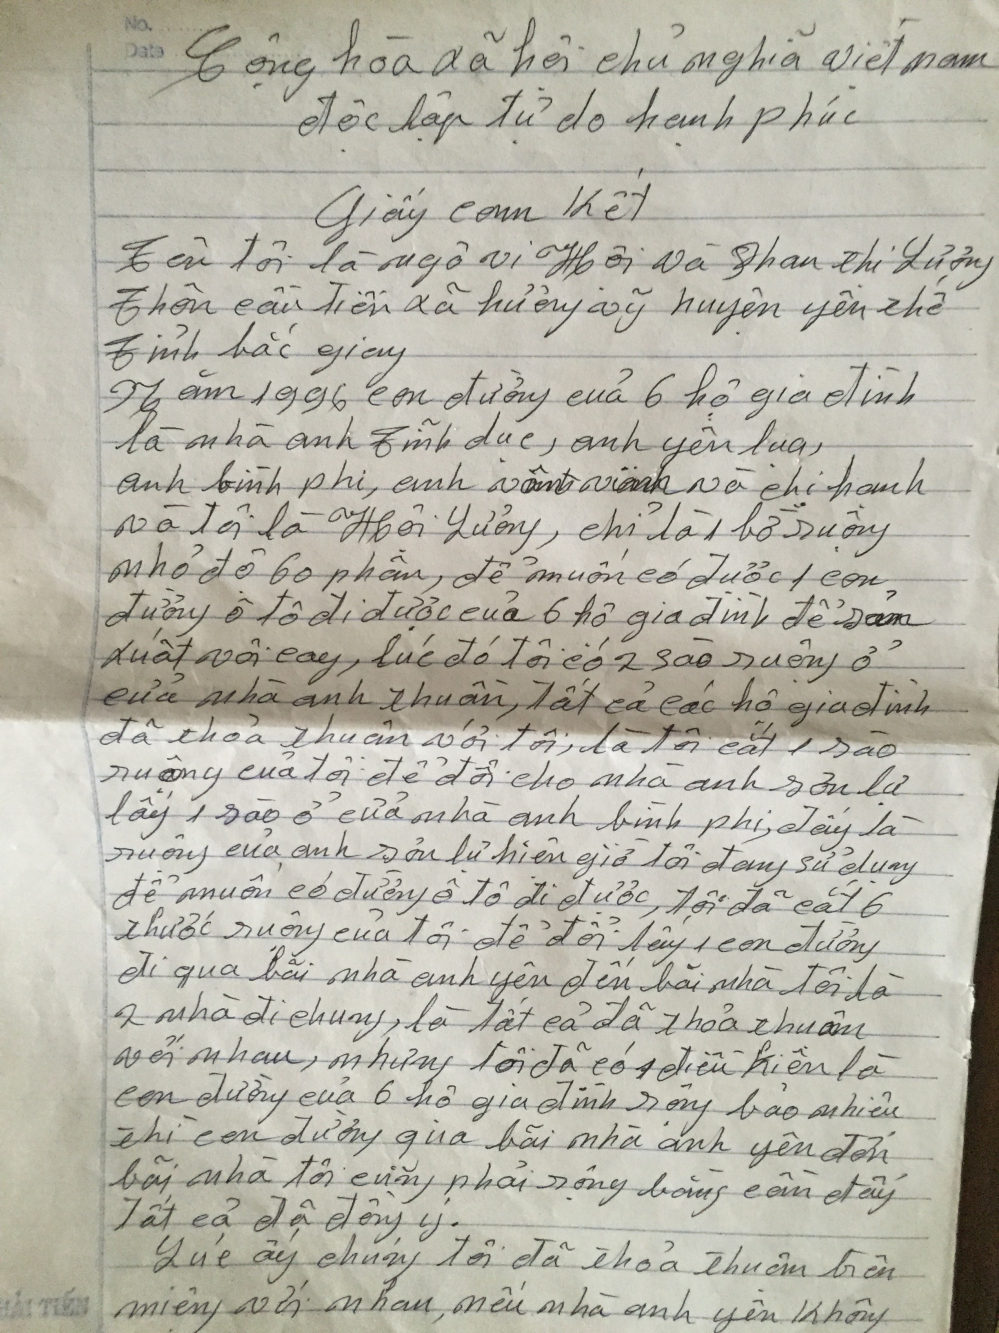 No.
Date
Cộng hòa xã hội chủ nghĩa việt nam
độc lập tự do hạnh phúc
Giấy cam kết
Tên tôi là ngô vi Hội và Phan thị Lưởng
Thôn cầu tiến xã hường vỹ huyện yên thế
Tỉnh bắc giang
Năm 1996 con đường của 6 hộ gia đình
là nhà anh Tĩnh dục, anh yên lua,
anh bình phi, anh vinh và chị hạnh
và tôi là Hội Lưởng, chỉ là 1 bờ ruộng
nhỏ độ 60 phân, để muốn có được 1 con
đường ô tô đi được của 6 hộ gia đình để sản
xuất vôi cay, lúc đó tôi có 2 sào ruộng ở
cửa nhà anh thuần, tất cả các hộ gia đình
đã thỏa thuận với tôi, là tôi cắt 1 sào
ruộng của tôi để đổi cho nhà anh sơn lự
lấy 1 sào ở cửa nhà anh bình phi, đấy là
ruộng của anh sơn lự hiện giờ tôi đang sử dụng
để muốn có đường ô tô đi được, tôi đã cắt 6
thước ruộng của tôi để đổi lấy 1 con đường
đi qua bãi nhà anh yên đến bãi nhà tôi là
2 nhà đi chung, là tất cả đã thỏa thuận
với nhau, nhưng tôi đã có 1 điều kiện là
con đường của 6 hộ gia đình rộng bao nhiêu
thì con đường qua bãi nhà anh yên đến
bãi nhà tôi cũng phải rộng bằng cần đấy
Tất cả đã đồng ý.
Lúc ấy chúng tôi đã thỏa thuận bằng
miệng với nhau, nếu nhà anh yên không
HẢI TIẾN